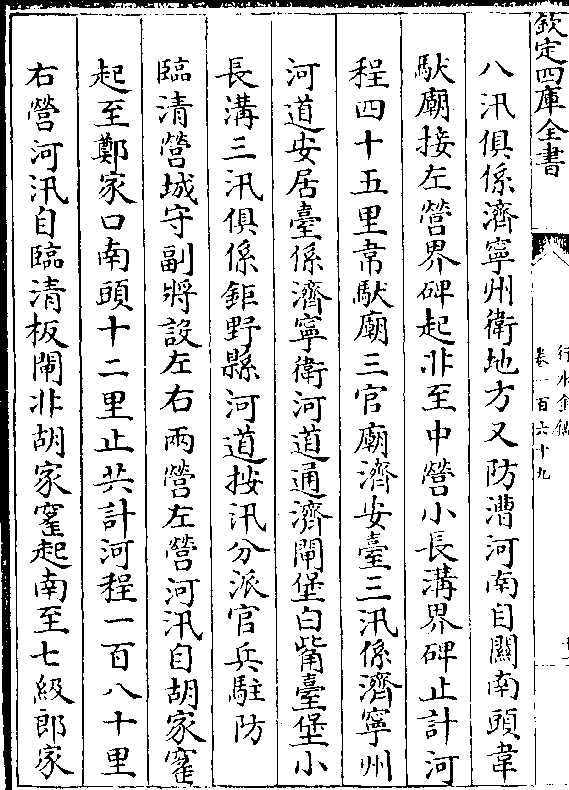 欽定四庫全書
行水金鑑
卷一百六十九
八汛俱係濟寧州衛地方又防漕河南自關南頭韋
馱廟接左營界碑起北至中營小長溝界碑止計河
程四十五里韋馱廟三官廟濟安臺三汛係濟寧州
河道安居臺係濟寧衛河道通濟閘堡白嘴臺堡小
長溝三汛俱係鉅野縣河道按汛分派官兵駐防
臨清營城守副將設左右兩營左營河汛自胡家窰
起至鄭家口南頭十二里止共計河程一百八十里
右營河汛自臨清板閘北胡家窰起南至七級郎家